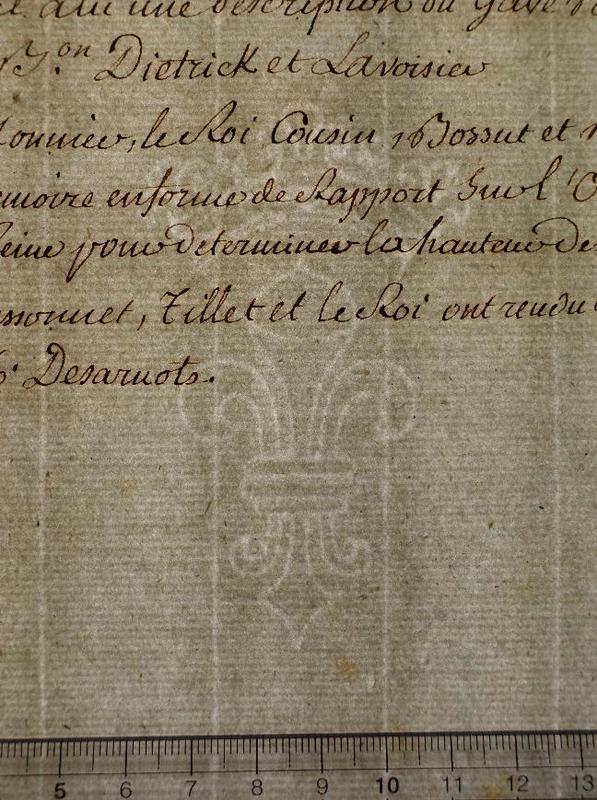 a lu une description du
B.on Dietrick et Lavoisier
le Roi Cousin, Bossut et
memoire en forme de Rapport Sur l'
pour determiner la hauteur de
Tillet et le Roi ont rendu
Desarnots.
5 6 7 8 9 10 11 12 13